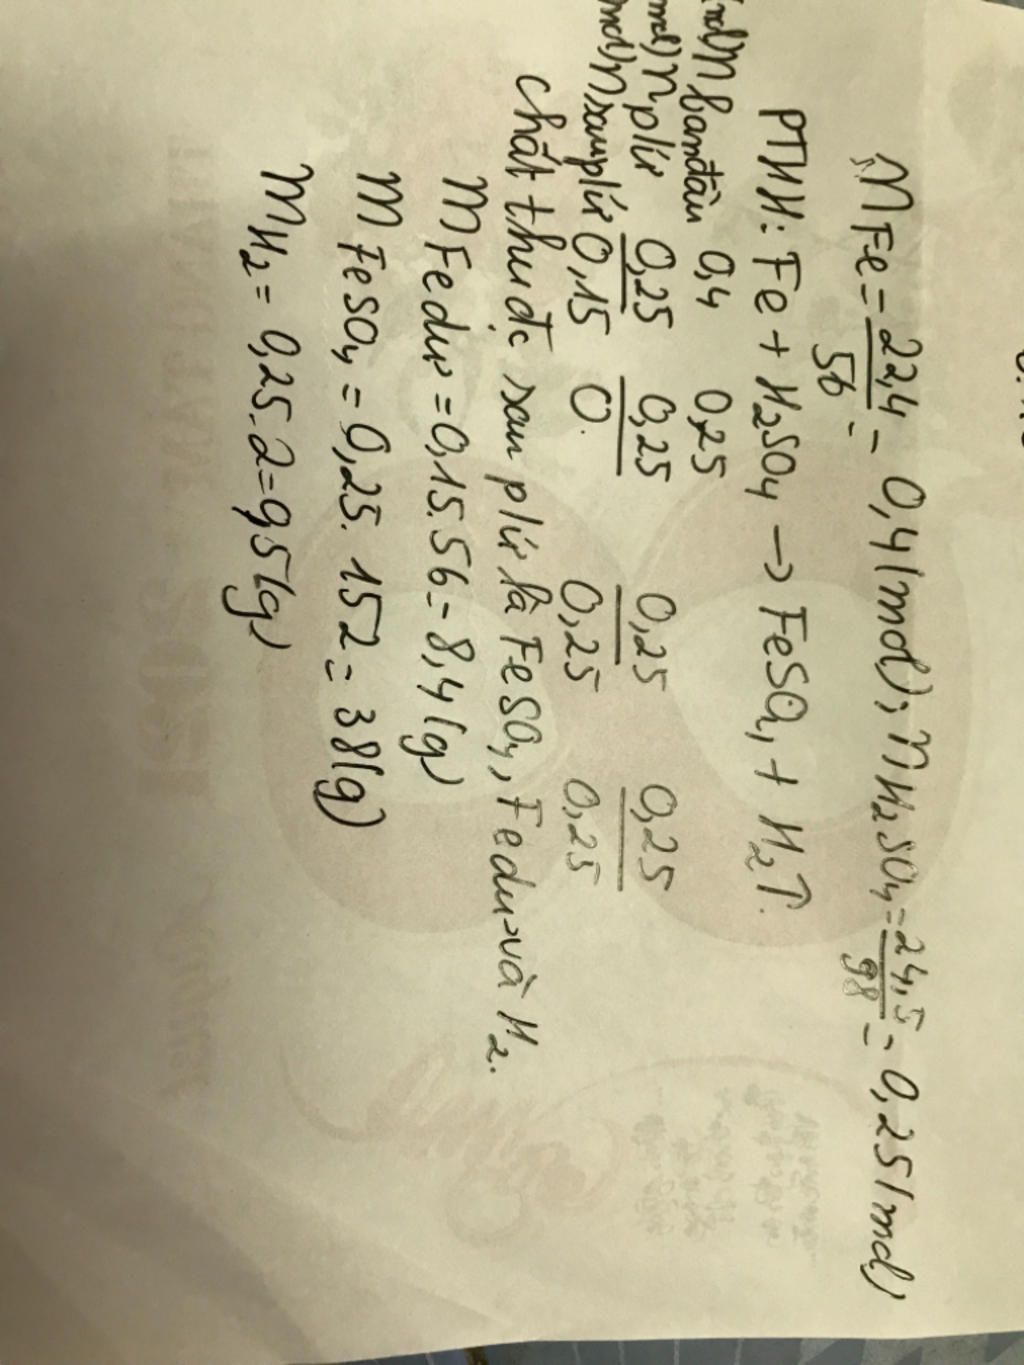 nFe = 22,4/56 = 0,4 (mol); nH2SO4 = 24,5/98 = 0,25 (mol)
PTHH: Fe + H2SO4 → FeSO4 + H2↑.
(mol) n ban đầu 0,4 0,25
(mol) n pứ 0,25 0,25 0,25 0,25
(mol) n sau pứ 0,15 0. 0,25 0,25
chất thu đc sau pứ là FeSO4, Fe dư và H2.
mFe dư = 0,15.56 = 8,4 (g)
mFeSO4 = 0,25.152 = 38 (g)
mH2 = 0,25.2 = 0,5 (g)